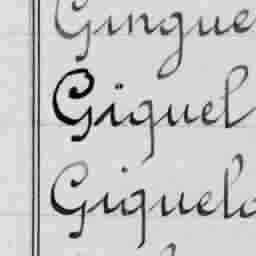 Gingue
Giquel
Giquelo